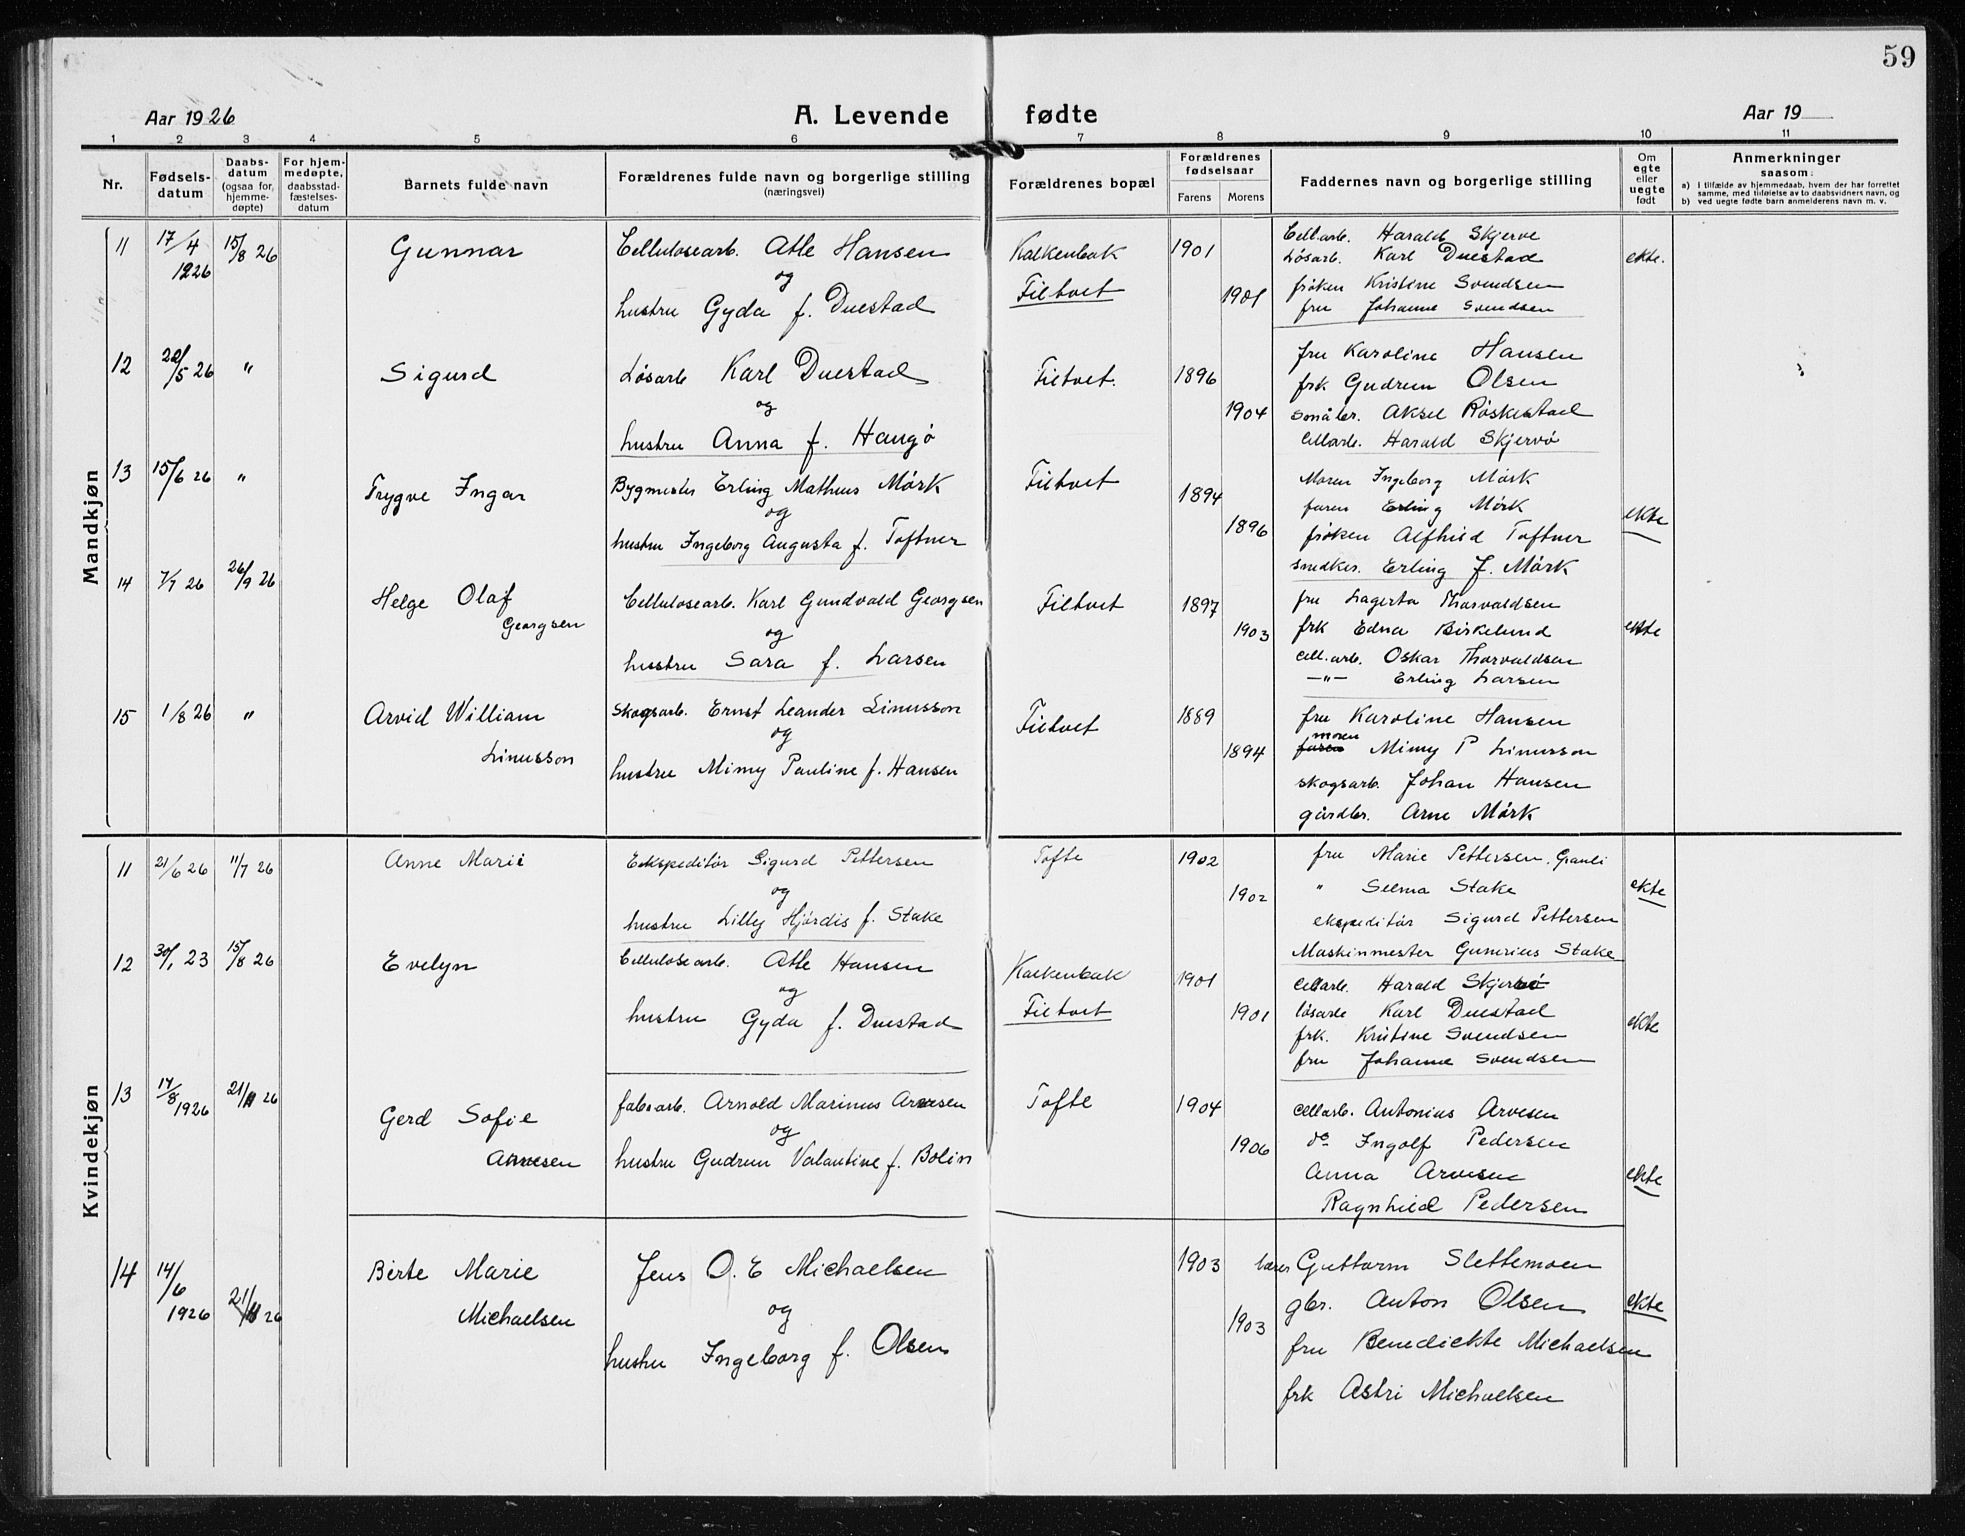 59
Aar 1926 A. Levende fødte Aar 19
1 2 3 4 5 6 7 8 9 10 11
Nr.
Fødsels-
datum
Daabs-
datum
(ogsaa for
hjemme-
døpte)
For hjem-
medøpte,
daabsstad-
fæstelses-
datum
Barnets fulde navn
Forældrenes fulde navn og borgerlige stilling
(næringsvei)
Forældrenes bopæl
Forældrenes
fødselsaar
Farens Morens
Faddernes navn og borgerlige stilling
Om
egte
eller
uegte
født
Anmerkninger
saasom:
a) I tilfælde av hjemmedaab, hvem der har forrettet
samme, med tilføielse av to daabsvidners navn, og
b) ved uegte fødte barn anmelderens navn m. v.
Mandkjøn
11 17/4 1926 15/8 26 Gunnar
Cellulosearb. Atle Hansen
og
hustru Gyda f. Duestad
Kalkenbak
Filtvet
1901
1901
Cell.arb. Harald Skjerve
Løsarb. Karl Duestad
frøken Kristine Svendsen
fru Johanne Svendsen
ekte.
12 20/5 26 " Sigurd
Løsarb Karl Duestad
og
hustru Anna f. Haugø
Filtvet.
1896
1904
fru Karoline Hansen
frk Gudrun Olsen
småbr. Aksel Røskestad
Cellarb. Harald Skjervø
13 15/6 26 " Trygve Ingar
Bygmester Erling Matheus Mørk
og
hustru Ingeborg Augusta f. Toftner
Filtvet
1894
1896
Moren Ingeborg Mørk
faren Erling Mørk
frøken Alfhild Toftner
snedker. Erling J. Mørk
ekte
14 7/7 26 26/9 26 Helge Olaf
Georgsen
Cellulosearb. Karl Gundvald Georgsen
og
hustru Sara f. Larsen
Filtvet
1897
1903
fru Lagerta Thorvaldsen
frk Edna Birkelund
Cell.arb. Oskar Thorvaldsen
—"— Erling Larsen
ekte
15 1/8 26 " Arvid William
Linusson
Skogsarb. Ernst Leander Linusson
og
hustru Mimy Pauline f. Hansen
Filtvet
1889
1894
fru Karoline Hansen
moren
faren Mimy P Linusson
skogsarb. Johan Hansen
gårdbr. Arne Mørk
Kvindekjøn
11 21/6 26 11/7 26 Anne Marie
Ekspeditør Sigurd Pettersen
og
hustru Lilly Hjørdis f. Stake
Tofte
1902
1902
fru Marie Pettersen, Granli
" Selma Stake
ekspeditør Sigurd Pettersen
Maskinmester Gunerius Stake
ekte
12 30/1 23 15/8 26 Evelyn
Cellulosearb. Atle Hansen
og
hustru Gyda f. Duestad
Kalkenbak
Filtvet
1901
1901
Cellarb. Harald Skjervø
løsarb Karl Duestad
frk. Kristine Svendsen
fru Johanne Svendsen
ekte
13 14/8 1926 21/11 26 Gerd Sofie
Arvesen
fabr.arb. Arnold Marinus Arvesen
og
hustru Gudrun Valantine f. Bolin
Tofte
1904
1906
cellarb. Antonius Arvesen
do Ingolf Pedersen
Anna Arvesen
Ragnhild Pedersen
ekte
14 14/6 1926 21/11 26 Birte Marie
Michaelsen
Jens O. E Michaelsen
og
hustru Ingeborg f. Olsen
1903
1903
Guttorm Slettemoen
gbr. Anton Olsen
fru Benedickte Michaelsen
frk Astri Michaelsen
ekte